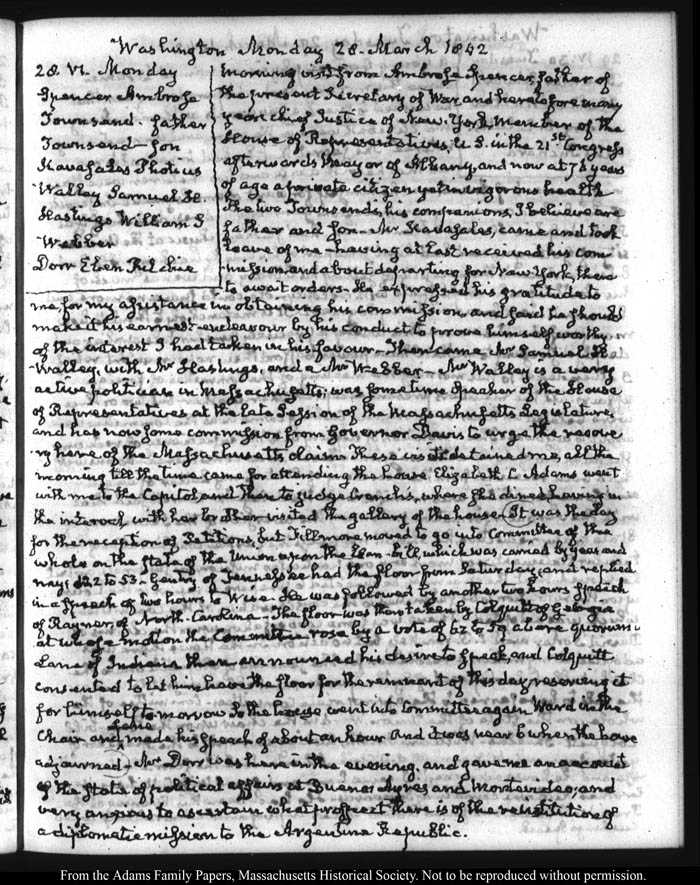 Washington Monday 28. March 1842
28. VI. Monday
Spencer Ambrose
Townsend - father
Townsend - son
Kavasales Photius
Walley Samuel H.
Hastings William S
Webber
Dorr Eben Ritchie
Morning visit from Ambrose Spencer, father of
the present Secretary of War, and heretofore many
years chief Justice of New-York, Member of the
House of Representatives, U.S. in the 21st. Congress
afterwards Mayor of Albany, and now at 78 years
of age a private citizen yet in vigorous health
The two Townsends, his companions, I believe are
father and son. Mr Kavasales, came and took
leave of me - having at last received his com-
mission, and about departing for New York, there
to await orders. He expressed his gratitude to
me for my assistance in obtaining his commission and said he should
make it his earnest endeavour by his conduct to prove himself worthy
of the interest I had taken in his favour. Then came Mr Samuel H.
Walley, with Mr Hastings, and a Mr Webber - Mr Walley is a very
active politician in Massachusetts; was sometime Speaker of the House
of Representatives at the late Session of the Massachusetts Legislature
and has now some commission from Governor Davis to urge the recove-
ry here of the Massachusetts claim. These visits detained me, all the
morning till the time came for attending the house. Elizabeth C. Adams went
with me to the Capitol, and thence to judge Cranch's, where she dined, having in
the interval with her brother visited the gallery of the house. It was the day
for the reception of Petitions, but Fillmore moved to go into Committee of the
whole on the state of the Union upon the Loan-bill, which was carried by yeas and
nays 122 to 53. Gentry of Tennessee had the floor from Saturday; and replied
in a speech of two hours to Wise. He was followed by another two hours speech
of Rayner, of North-Carolina - The floor was then taken by Colquitt of Georgia
at whose motion the Committee rose by a vote of 62 to 59 a bare quorum
Lane of Indiana then announced his desire to speak, and Colquitt
consented to let him have the floor for the remnant of this day reserving it
for himself to-morrow. So the house went into Committee again Ward in the
Chair and Lane made his speech of about an hour and it was near 6 when the house
adjourned. Mr Dorr was here in the evening, and gave me an account
of the state of political affairs at Buenos Ayres and Montevideo; and
very anxious to ascertain what prospect there is of the restitution of
a diplomatic mission to the Argentine Republic.
From the Adams Family Papers, Massachusetts Historical Society. Not to be reproduced without permission.